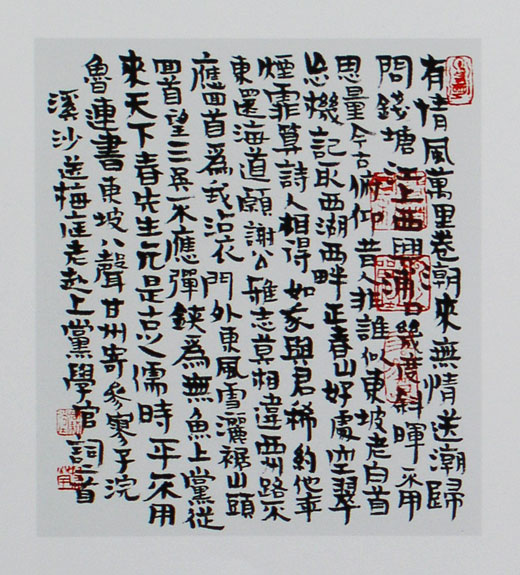 有情風萬里卷潮來無情送潮歸
問錢塘江上西興浦口幾度斜暉不用
思量今古俯仰昔人非誰似東坡老白首
忘機記取西湖西畔正春山好處空翠
煙霏算詩人相得如我與君稀約他年
東還海道願謝公雅志莫相違西州路不
應回首爲我沾衣門外東風雪灑裾山頭
回首望三吳不應彈鋏爲無魚上黨從
來天下春先生元是古之儒時平不用
魯連書東坡八聲甘州寄參寥子浣
溪沙送梅庭老赴上黨學官詞二首